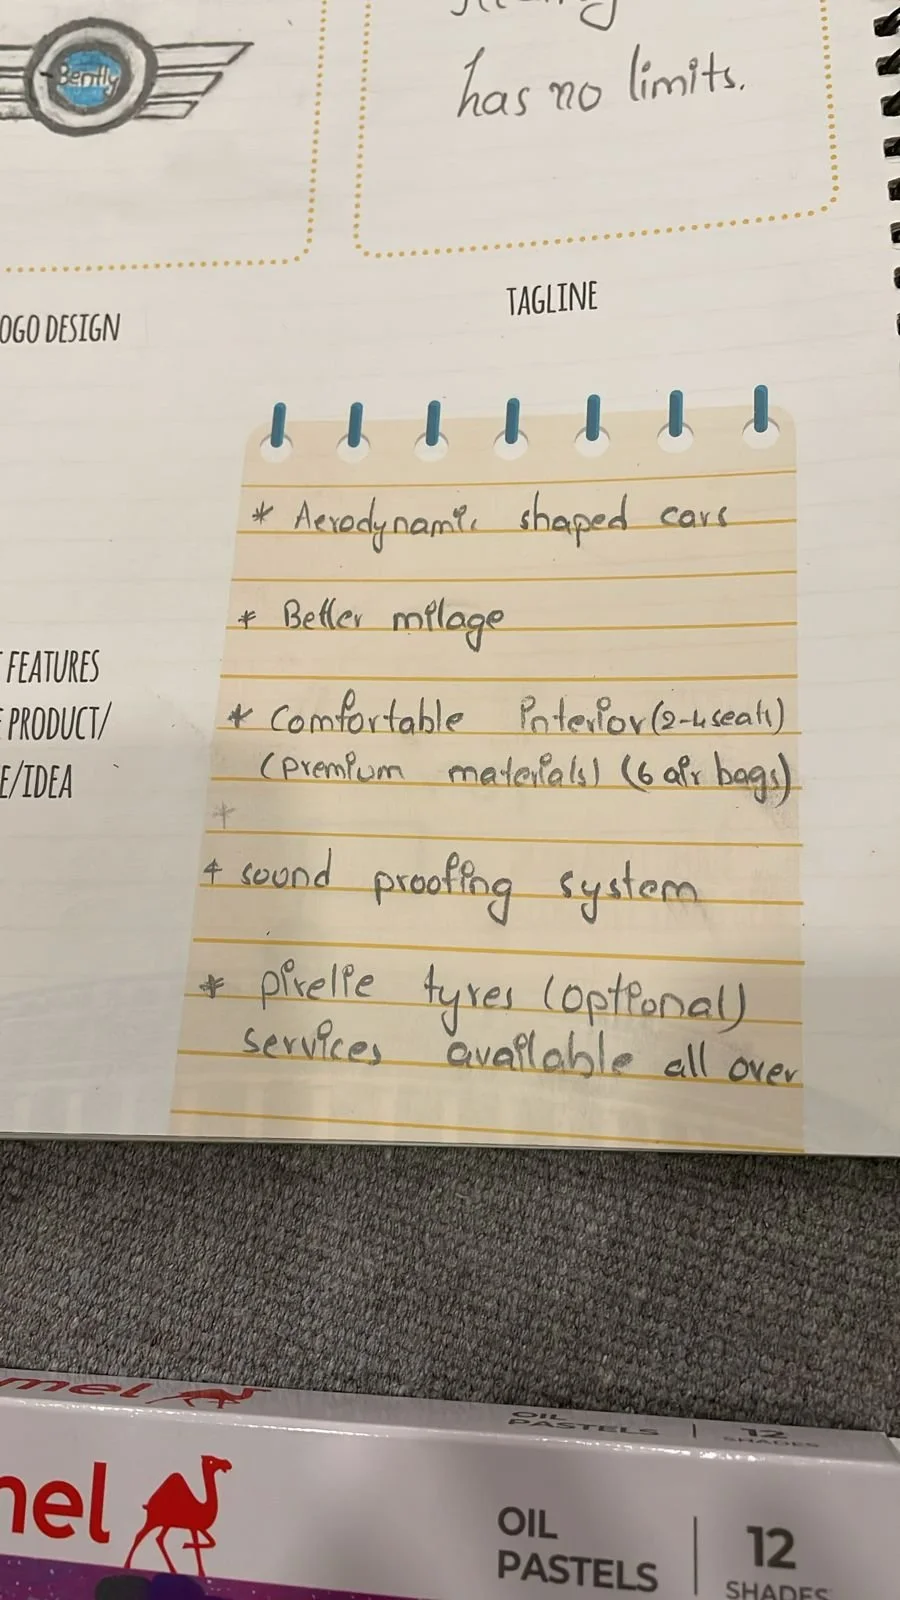 Bently
has no limits.
OGO DESIGN
TAGLINE
* Aerodynamic shaped cars
* Better milage
FEATURES
PRODUCT/
E/IDEA
* Comfortable interior (2-4 seats)
(premium materials) (6 air bags)
*
* sound proofing system
* pirelie tyres (optional)
services available all over
mel
OIL
PASTELS
12
SHADES
mel
OIL
PASTELS
12
SHADES